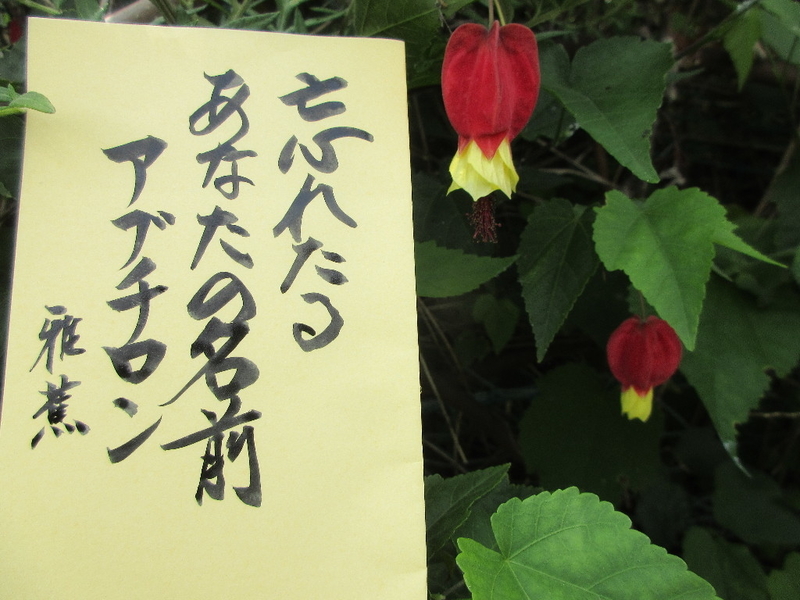 忘れたる
あなたの名前
アブチロン
雅蕉